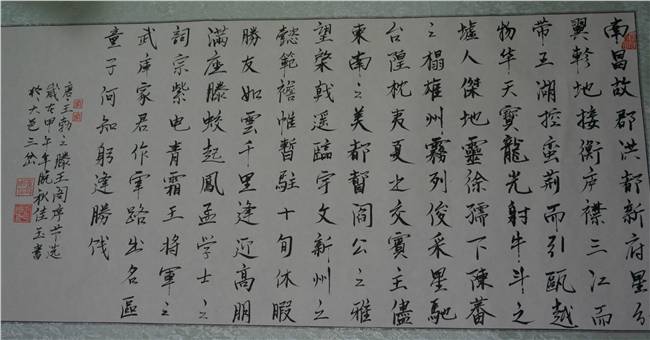 南昌故郡洪都新府星分
翼軫地接衡庐襟三江而
带五湖控蛮荊而引甌越
物华天寶龍光射牛斗之
墟人傑地靈徐孺下陳蕃
之榻雄州霧列俊采星馳
台隍枕夷夏之交賓主儘
東南之美都督閻公之雅
望棨戟遥臨宇文新州之
懿範襜帷暫駐十旬休暇
勝友如雲千里逢迎高朋
满座滕蛟起鳳孟学士之
詞宗紫电青霜王将軍之
武库家君作宰路出名區
童子何知躬逢勝饯
唐王勃之滕王阁序节选
歲在甲午年晚秋佳玉書
於大邑三岔